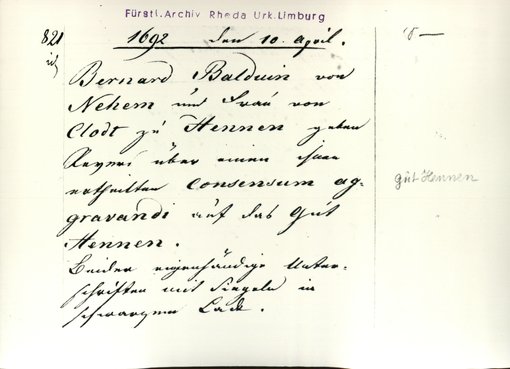 Fürstl. Archiv Rheda Urk. Limburg
821
1692 den 10. April.
Bernard Balduin von
Nehem und Frau von
Clodt zu Hennen geben
Revers über einen ihnen
ertheilten Consensum ag-
gravandi auf das Gut
Hennen.
Beider eigenhändige Unter-
schriften mit Siegeln in
schwarzem Lack.
Gut Hennen